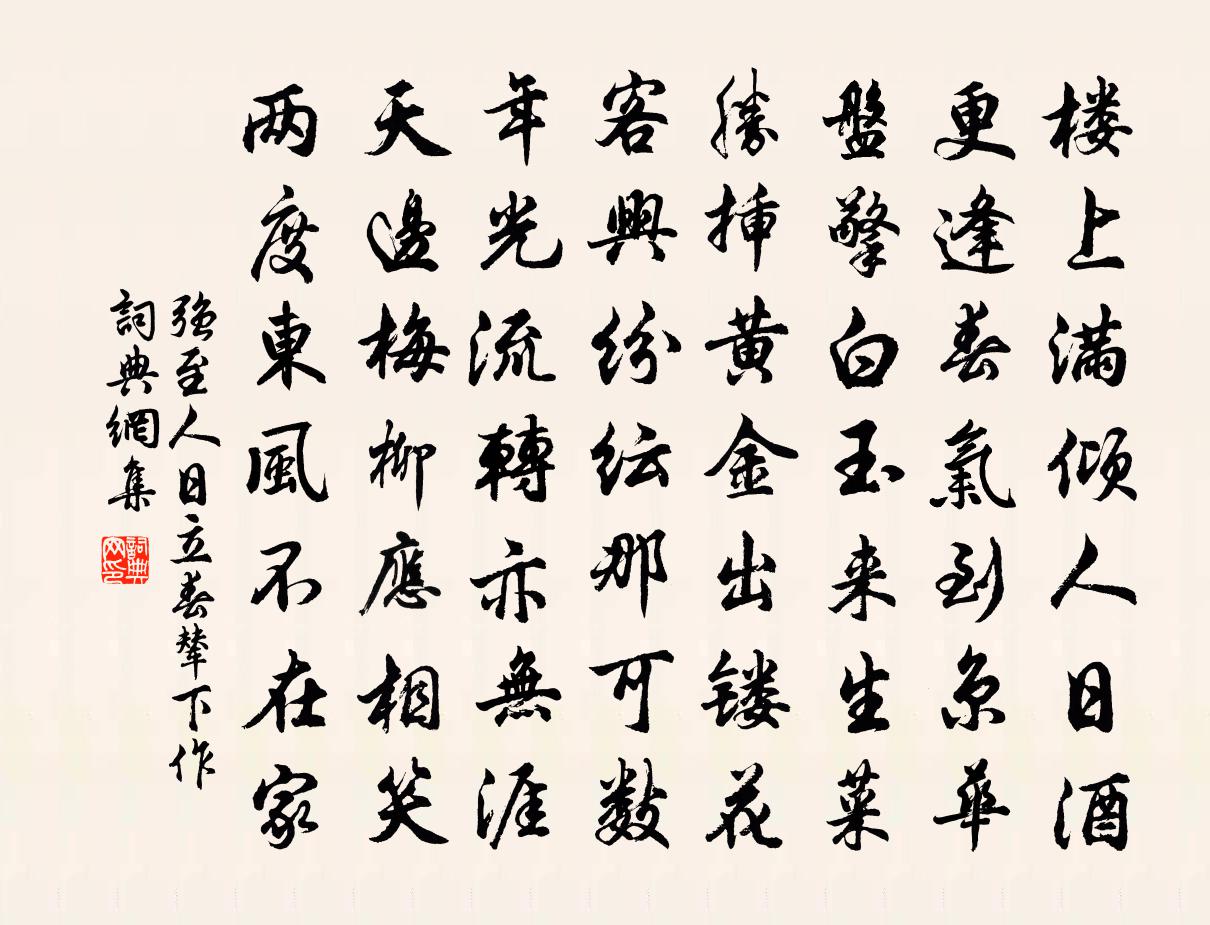 楼上满倾人日酒
更逢春氣到京華
盤擎白玉来生菜
勝插黄金出镂花
客興紛纭那可数
年光流轉亦無涯
天邊梅柳應相笑
两度東風不在家
强至人日立春輦下作
詞典網集
詞典网印